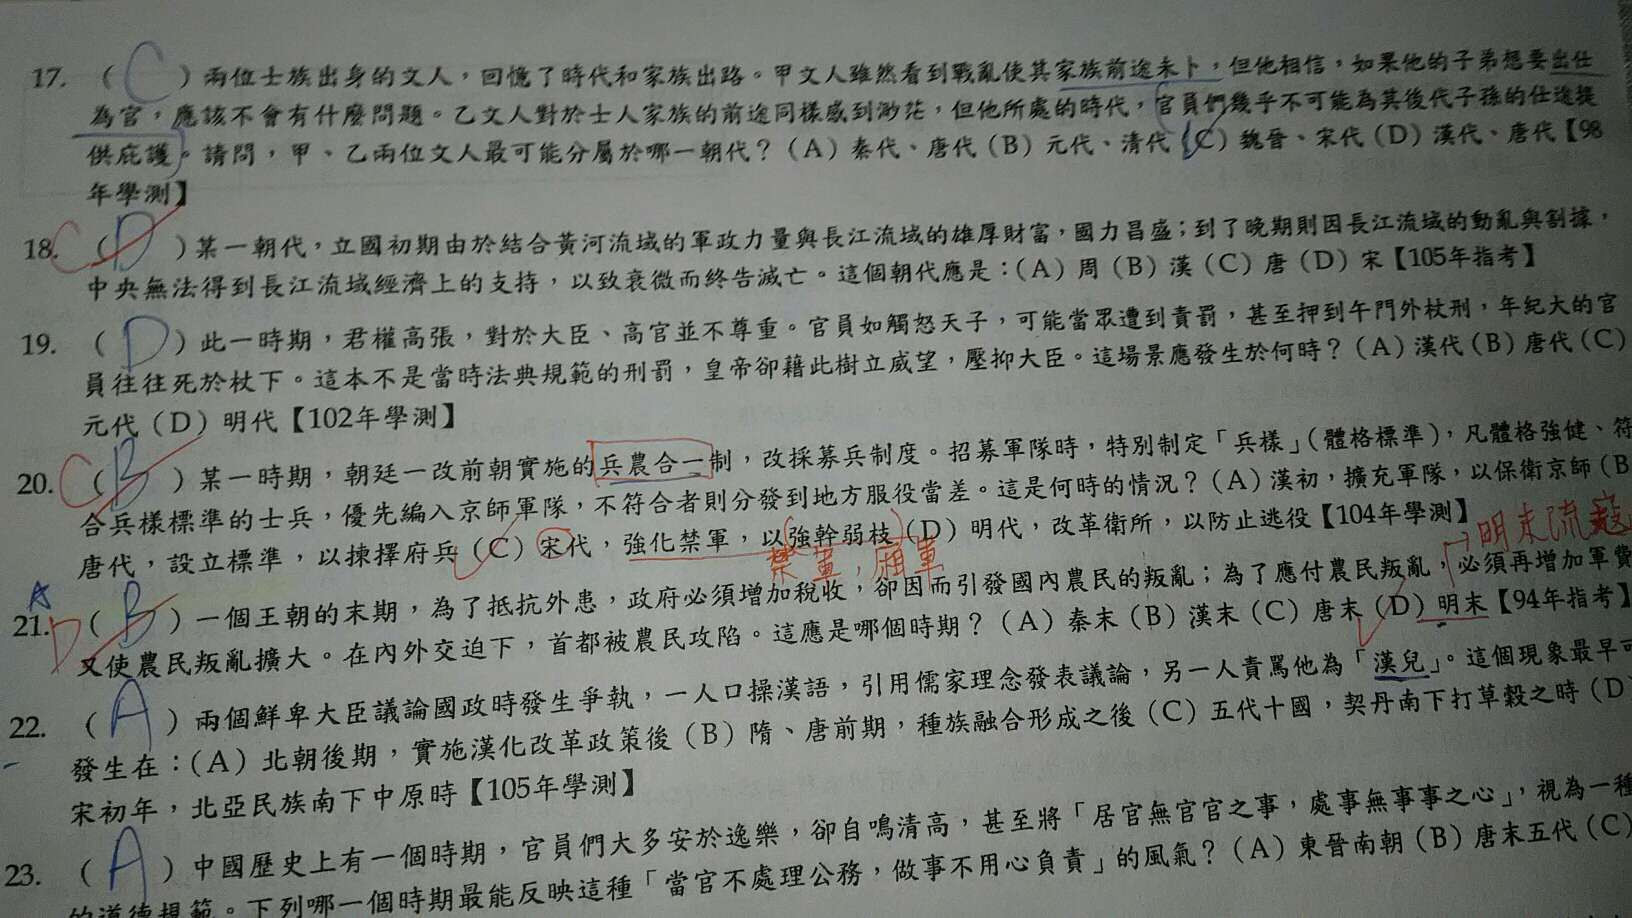 17. ( C ) 兩位士族出身的文人，回憶了時代和家族出路。甲文人雖然看到戰亂使其家族前途未卜，但他相信，如果他的子弟想要出仕
為官，應該不會有什麼問題。乙文人對於士人家族的前途同樣感到渺茫，但他所處的時代，官員們幾乎不可能為其後代子孫的仕途提
供庇護。請問，甲、乙兩位文人最可能分屬於哪一朝代？(A) 秦代、唐代 (B) 元代、清代 (C) 魏晉、宋代 (D) 漢代、唐代【98
年學測】
18. C ( D ) 某一朝代，立國初期由於結合黃河流域的軍政力量與長江流域的雄厚財富，國力昌盛；到了晚期則因長江流域的動亂與割據，
中央無法得到長江流域經濟上的支持，以致衰微而終告滅亡。這個朝代應是：(A) 周 (B) 漢 (C) 唐 (D) 宋【105年指考】
19. ( D ) 此一時期，君權高張，對於大臣、高官並不尊重。官員如觸怒天子，可能當眾遭到責罰，甚至押到午門外杖刑，年紀大的官
員往往死於杖下。這本不是當時法典規範的刑罰，皇帝卻藉此樹立威望，壓抑大臣。這場景應發生於何時？(A) 漢代 (B) 唐代 (C)
元代 (D) 明代【102年學測】
20. C ( B ) 某一時期，朝廷一改前朝實施的兵農合一制，改採募兵制度。招募軍隊時，特別制定「兵樣」(體格標準)，凡體格強健、符
合兵樣標準的士兵，優先編入京師軍隊，不符合者則分發到地方服役當差。這是何時的情況？(A) 漢初，擴充軍隊，以保衛京師 (B
唐代，設立標準，以揀擇府兵 (C) 宋代，強化禁軍，以強幹弱枝 (D) 明代，改革衛所，以防止逃役【104年學測】
禁軍，廂軍
明末流寇
A
21. D ( B ) 一個王朝的末期，為了抵抗外患，政府必須增加稅收，卻因而引發國內農民的叛亂；為了應付農民叛亂，必須再增加軍費
又使農民叛亂擴大。在內外交迫下，首都被農民攻陷。這應是哪個時期？(A) 秦末 (B) 漢末 (C) 唐末 (D) 明末【94年指考】
22. ( A ) 兩個鮮卑大臣議論國政時發生爭執，一人口操漢語，引用儒家理念發表議論，另一人責罵他為「漢兒」。這個現象最早可
發生在：(A) 北朝後期，實施漢化改革政策後 (B) 隋、唐前期，種族融合形成之後 (C) 五代十國，契丹南下打草穀之時 (D
宋初年，北亞民族南下中原時【105年學測】
23. ( A ) 中國歷史上有一個時期，官員們大多安於逸樂，卻自鳴清高，甚至將「居官無官官之事，處事無事事之心」，視為一種
的道德規範。下列哪一個時期最能反映這種「當官不處理公務，做事不用心負責」的風氣？(A) 東晉南朝 (B) 唐末五代 (C)